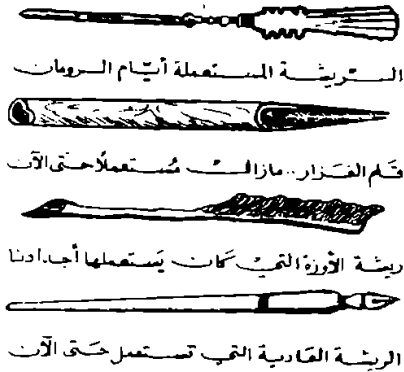 الريشة المستعملة أيّام الرومان
قلم الغزار.. مازالت مُستعملاً حتى الآن
ريشة الأوزة التي كان يَستعملها أجدادنا
الريشة العادية التي تستعمل حتى الآن